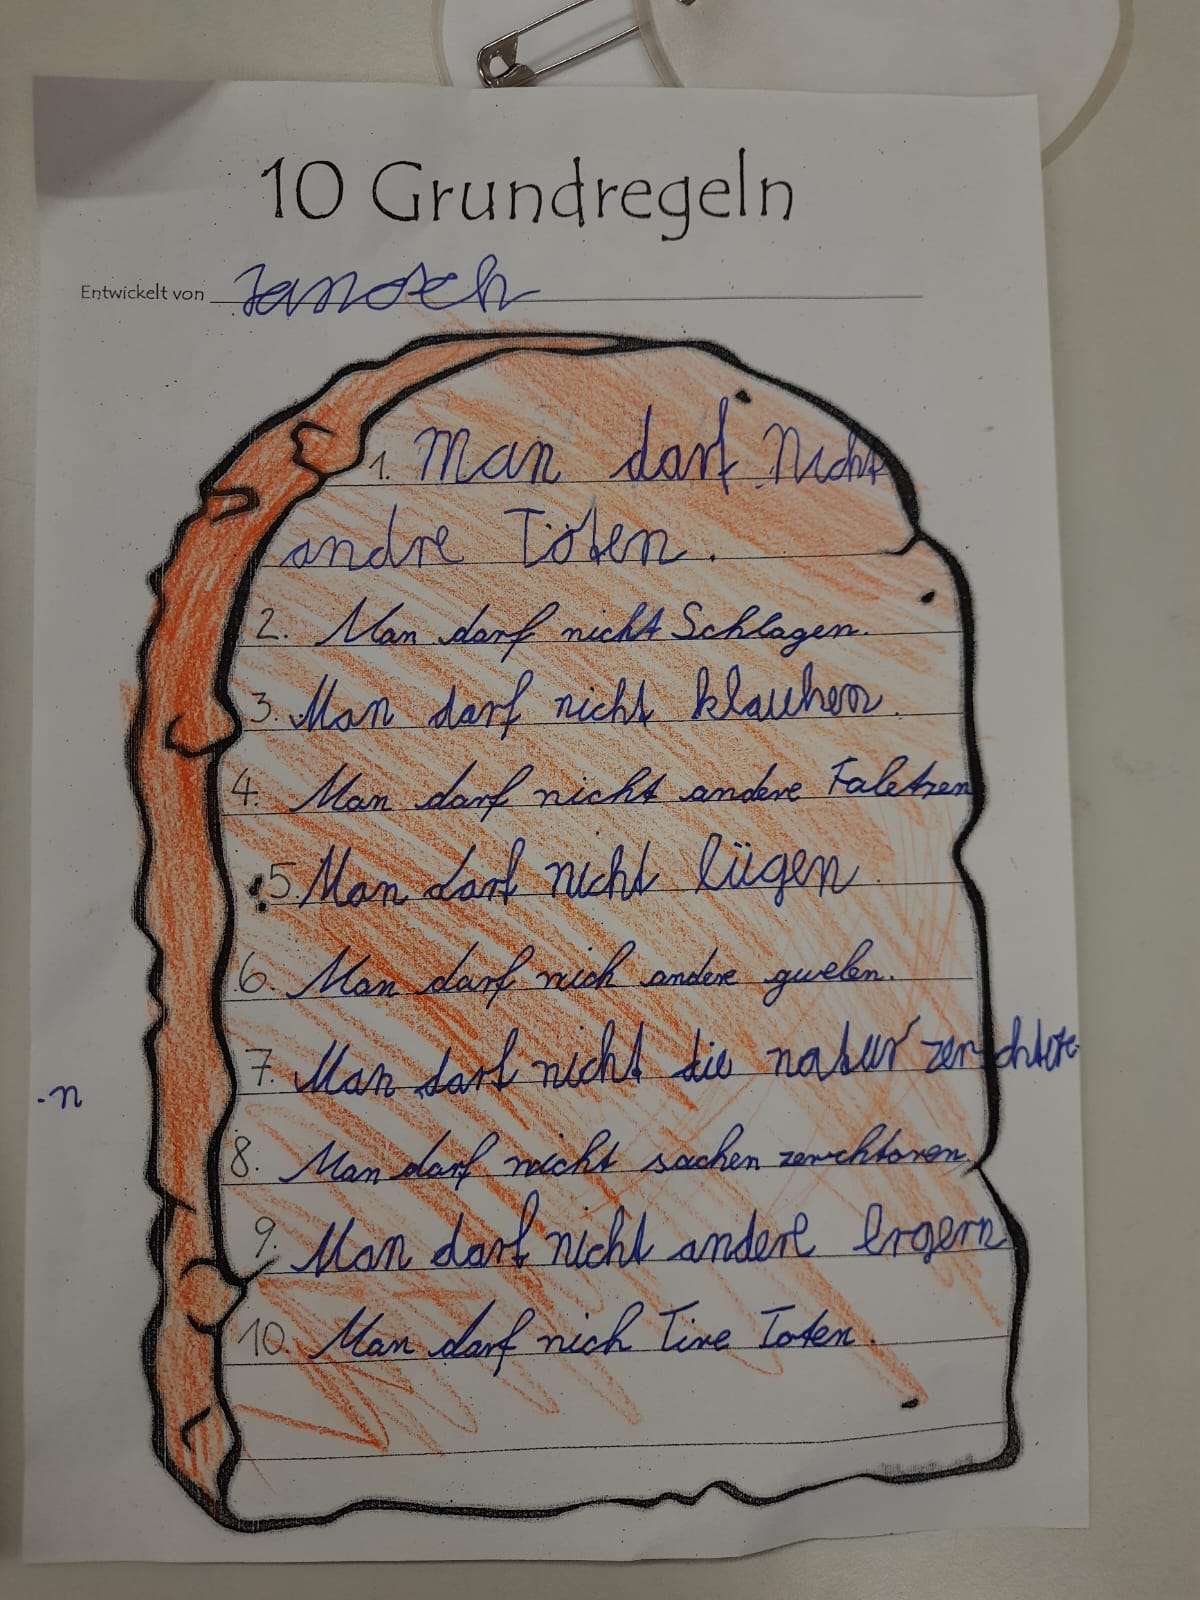 10 Grundregeln
Entwickelt von Janosch
1. Man darf Nicht
andre Töten.
2. Man darf nicht Schlagen.
3. Man darf nicht klauhen.
4. Man darf nicht andere Faletzen
5. Man darf nicht lügen.
6. Man darf nich andere gwelen.
7. Man darf nicht die natur zerschtöre-
-n
8. Man darf nicht sachen zerchtoren.
9. Man darf nicht andere ergern
10. Man darf nich Tire Toten.